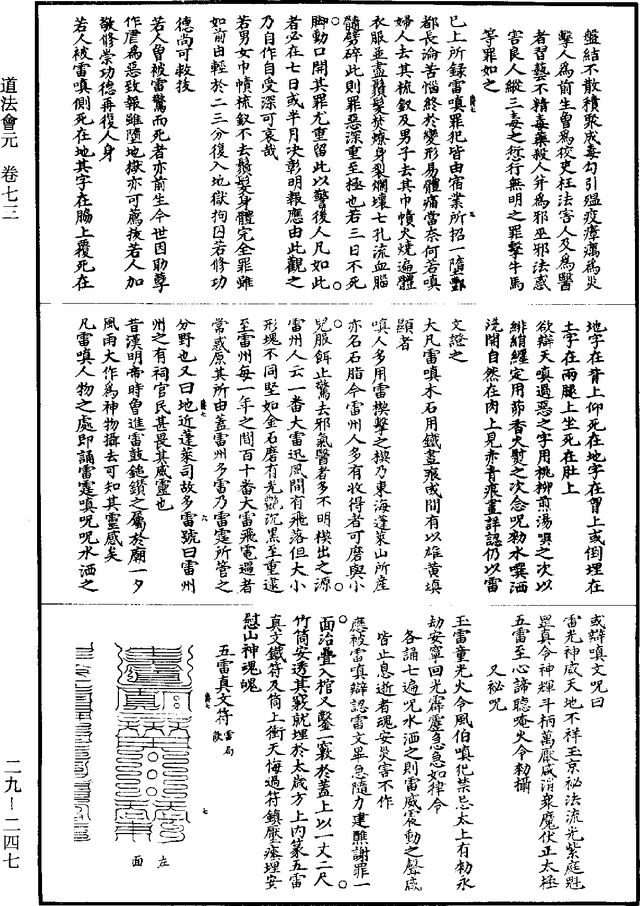 道法會元　卷七三
二九—二四七
盤結不散積聚成毒勾引瘟疫瘴癘為災
擊人為前生曾為校吏枉法害人及為醫
者習藝不精毒藥殺人并為邪巫邪法惑
害良人縱三毒之愆行無明之罪擊牛馬
等罪如之
已上所錄雷嗔罪犯皆由宿業所招一墮酆
都長淪苦惱終於變形易體痛當奈何若嗔
婦人去其梳釵及男子去其巾幘火燒遍體
衣服並盡鬚髮焚燎身裂爛壞七孔流血腦
髓劈碎此則罪惡深重至極也若三日不死
脚動口開其罪尤重留此以警後人凡如此
者必在七日或半月決彰明報應由此觀之
乃自作自受深可哀哉
若男女巾幘梳釵不去鬚髮身體完全罪雖
如前由輕於二三分復入地獄拘囚若修功
德尚可救技
若人曾被雷驚而死者亦前生今世因勛尊
作虐為惡致報雖墮地獄亦可薦拔若人加
敬修崇功德再復人身
若人被雷嗔側死在地其字在脇上覆死在
地字在背上仰死在地字在胷上或倒埋在
土字在兩腿上坐死在肚上
欲辯天嗔過惡之字用桃柳煎湯嗔之次以
緋絹纏定用茆香火熨之次念呪勑水噀洒
洗開自然在肉上見赤青痕畫詳認仍以雷
文證之
大凡雷嗔木石用鐵畫痕或間有以雄黃填
顯者
嗔人多用雷楔擊之楔乃東海蓬萊山所産
亦名石脂今雷州人多有收得者可磨與小
兒服餌止驚去邪氣醫者多不明楔出之源
雷州人云一番大雷迅風間有飛落但大小
形塊不同堅如金石磨有光艷沉黑至重遠
至雷州每一年之間百十番大雷飛電過者
常惑原其所由蓋雷州多雷乃雷霆所管之
分野也又曰地近蓬萊司故多雷號曰雷州
州之有祠官民甚畏其威靈也
昔漢明帝時曾進雷鼓鎚鑽之屬於廟一夕
風雨大作為神物攝去可知其靈感矣
凡雷嗔人物之處即誦雷霆嗔呪呪水洒之
或辯嗔文呪曰
雷光神威天地不祥玉京祕法流光紫庭魁
罡真令神輝斗柄萬壓咸消衆魔伏正太極
五雷至心諦聽唵火令勑攝
又祕呪
玉雷童光火令風伯嗔犯禁忌太上有勑永
劫安寧回光霹靂急急如律令
各誦七遍呪水洒之則雷威震動之聲咸
皆止息逝者魂安災害不作
應被雷嗔辯認雷文畢急隨力建醮謝罪一
面治疊入棺又鑿一竅於蓋上以一丈二尺
竹筒安透其竅就埋於太歲方上內篆五雷
真文鐵符及筒上衝天悔過符鎮壓瘞埋安
慰山神魂魄
五雷真文符
左
面